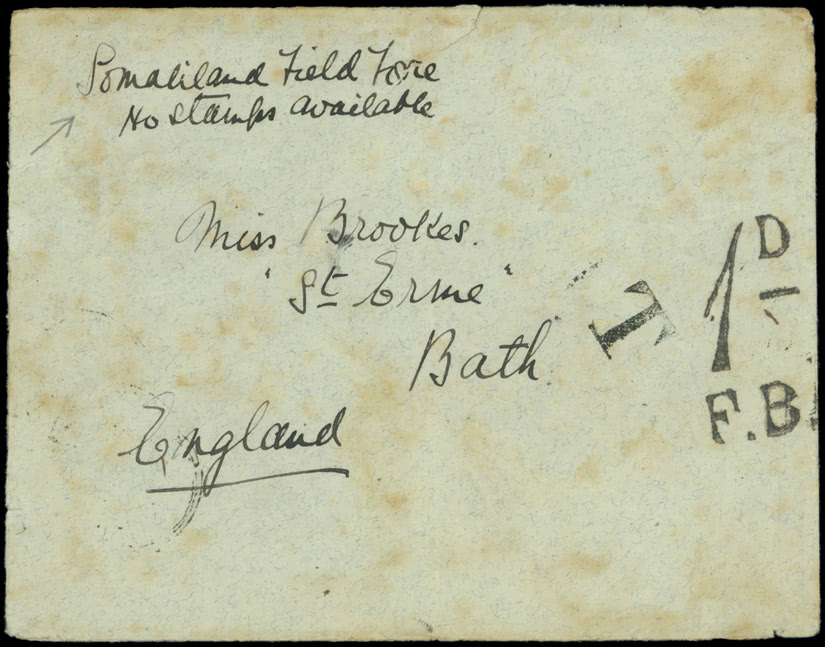 Somaliland Field Force
No stamps available
Miss Brookes.
"St Erme"
Bath
England
T
1D
F.B.